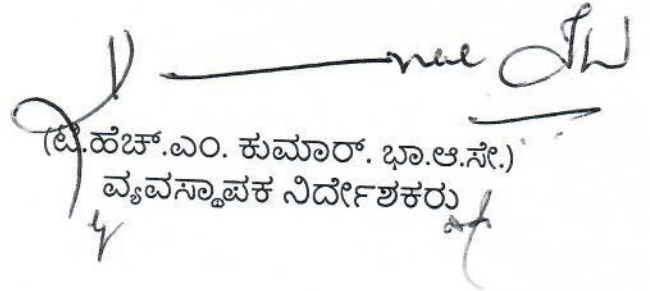 (ಟಿ.ಹೆಚ್.ಎಂ. ಕುಮಾರ್. ಭಾ.ಆ.ಸೇ.)
ವ್ಯವಸ್ಥಾಪಕ ನಿರ್ದೇಶಕರು